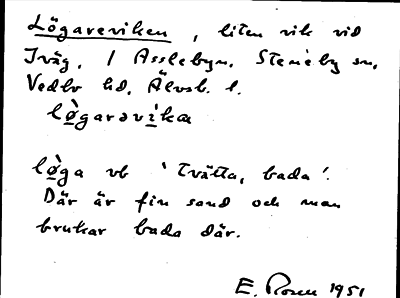 Lögareviken, liten vik vid
Iväg, / Asslebyn. Steneby sn,
Vedbo hd. Älvsb. l.
lø̀garəvìka
lø̀ga vb 'tvätta, bada'.
Där är fin sand och man
brukar bada där.
E. Rosen 1951